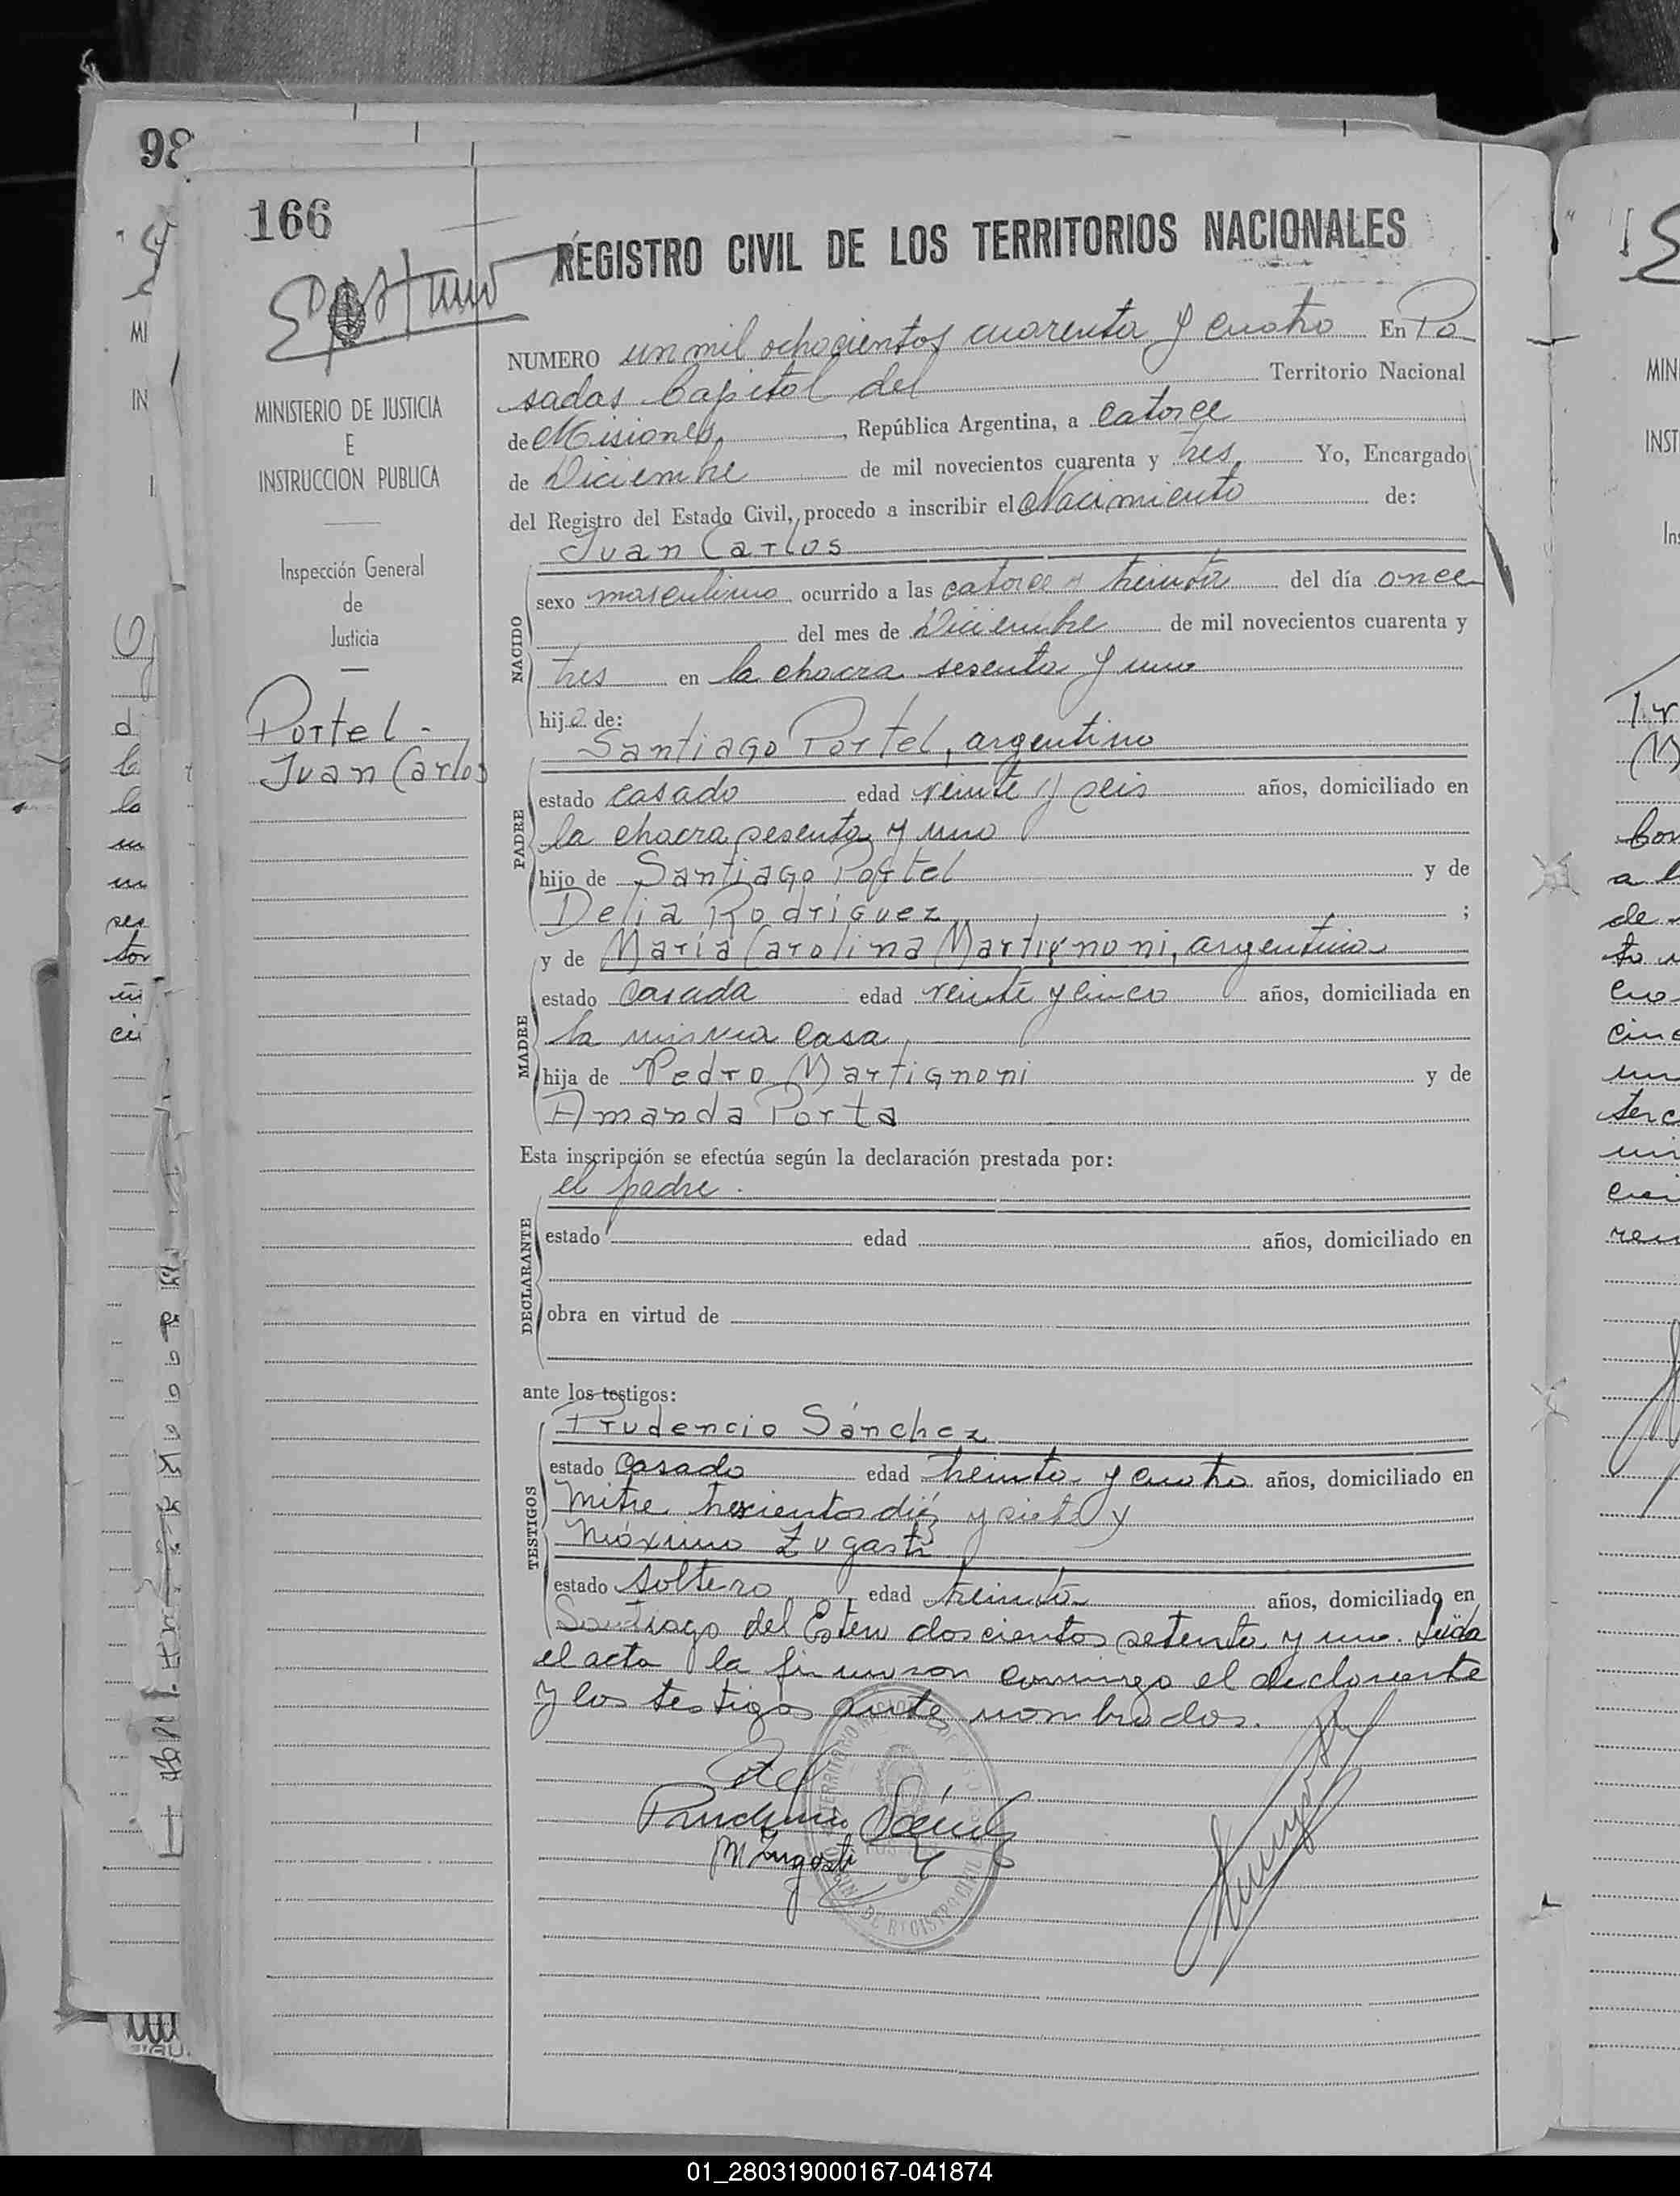 98
166
REGISTRO CIVIL DE LOS TERRITORIOS NACIONALES
NUMERO un mil ochocientos cuarenta y cuatro En Po
sadas Capital del Territorio Nacional
de Misiones, República Argentina, a catorce
de Diciembre de mil novecientos cuarenta y tres, Yo, Encargado
del Registro del Estado Civil, procedo a inscribir el Nacimiento de:
Juan Carlos
MINISTERIO DE JUSTICIA
E
INSTRUCCION PUBLICA
Inspección General
de
Justicia
Portel -
Juan Carlos
NACIDO
sexo masculino ocurrido a las catorce y treinta del día once
del mes de Diciembre de mil novecientos cuarenta y
tres en la chacra sesenta y uno
hijo de:
Santiago Portel, argentino
PADRE
estado casado edad veinte y seis años, domiciliado en
la chacra sesenta y uno
hijo de Santiago Portel y de
Delia Rodriguez ;
y de Maria Carolina Martignoni, argentina
MADRE
estado casada edad veinte y cinco años, domiciliada en
la misma casa
hija de Pedro Martignoni y de
Amanda Porta
Esta inscripción se efectúa según la declaración prestada por:
el padre.
DECLARANTE
estado edad años, domiciliado en
obra en virtud de
ante los testigos:
Prudencio Sánchez
TESTIGOS
estado casado edad treinta y cuatro años, domiciliado en
Mitre trescientos diez y siete y
Máximo Zugasti
estado soltero edad treinta años, domiciliado en
Santiago del Estero doscientos setenta y uno. Leída
el acta la firmaron conmigo el declarante
y los testigos ante nombrados.
Prudencio Sánchez
M Zugasti
01_280319000167-041874